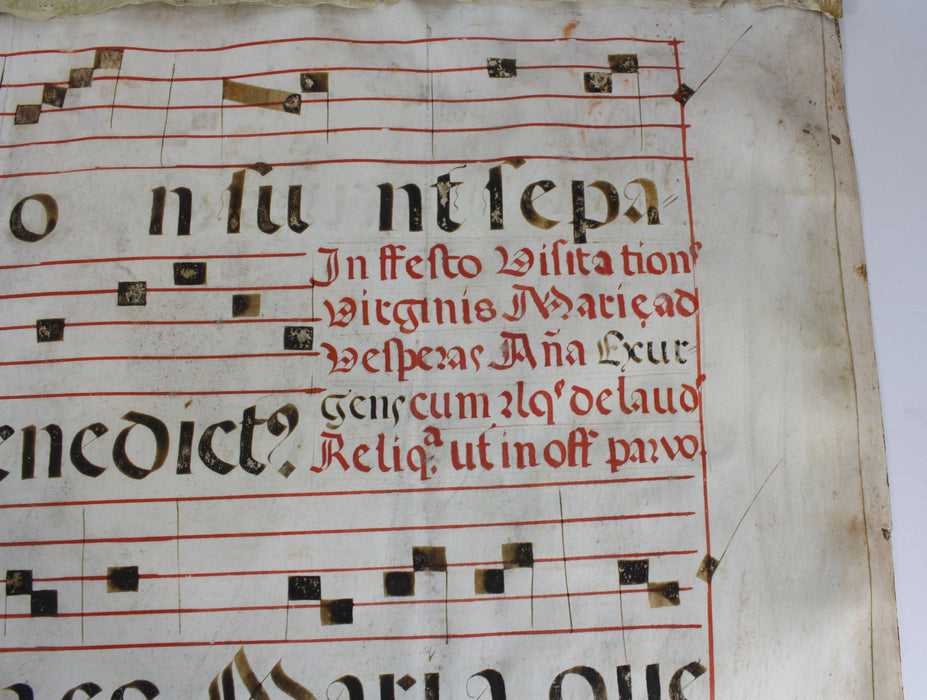 o n su nt sepa-
In ffesto Visitations
Virginis Marię ad
Vesperas Aña Exur-
gens cum rlqs de laud
enedict?
Reliqa. ut in off parvo.
Maria que